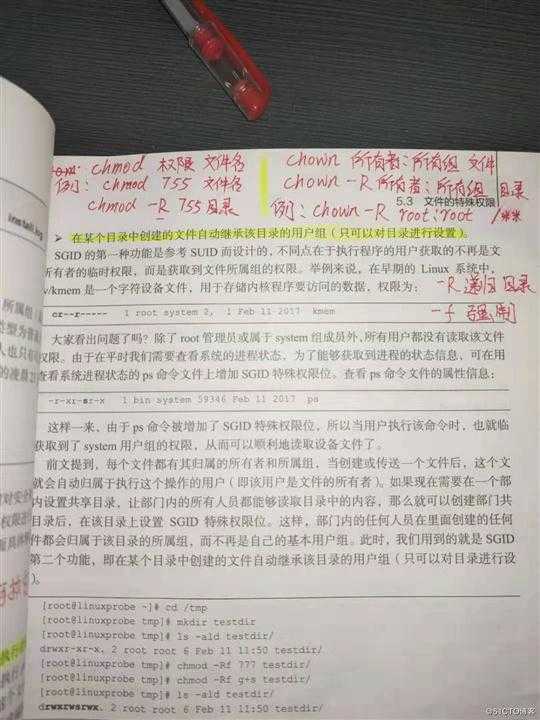 chmod 权限 文件名
例：chmod 755 文件名
chmod -R 755 目录
chown 所有者：所有组 文件
chown -R 所有者：所有组 目录
5.3 文件的特殊权限
例：chown -R root:root
➢ 在某个目录中创建的文件自动继承该目录的用户组（只可以对目录进行设置）。
SGID 的第一种功能是参考 SUID 而设计的，不同点在于执行程序的用户获取的不再是文
所有者的临时权限，而是获取到文件所属组的权限。举例来说，在早期的 Linux 系统中，
v/kmem 是一个字符设备文件，用于存储内核程序要访问的数据，权限为：
-R 递归目录
cr--r----- 1 root system 2, 1 Feb 11 2017 kmem
-f 强制
大家看出问题了吗？除了 root 管理员或属于 system 组成员外，所有用户都没有读取该文件
权限。由于在平时我们需要查看系统的进程状态，为了能够获取到进程的状态信息，可在用
查看系统进程状态的 ps 命令文件上增加 SGID 特殊权限位。查看 ps 命令文件的属性信息：
-r-xr-sr-x 1 bin system 59346 Feb 11 2017 ps
这样一来，由于 ps 命令被增加了 SGID 特殊权限位，所以当用户执行该命令时，也就临
获取到了 system 用户组的权限，从而可以顺利地读取设备文件了。
前文提到，每个文件都有其归属的所有者和所属组，当创建或传送一个文件后，这个文
就会自动归属于执行这个操作的用户（即该用户是文件的所有者）。如果现在需要在一个部
内设置共享目录，让部门内的所有人员都能够读取目录中的内容，那么就可以创建部门共
目录后，在该目录上设置 SGID 特殊权限位。这样，部门内的任何人员在里面创建的任何
件都会归属于该目录的所属组，而不再是自己的基本用户组。此时，我们用到的就是 SGID
第二个功能，即在某个目录中创建的文件自动继承该目录的用户组（只可以对目录进行设
）。
[root@linuxprobe ~]# cd /tmp
[root@linuxprobe tmp]# mkdir testdir
[root@linuxprobe tmp]# ls -ald testdir/
drwxr-xr-x. 2 root root 6 Feb 11 11:50 testdir/
[root@linuxprobe tmp]# chmod -Rf 777 testdir/
[root@linuxprobe tmp]# chmod -Rf g+s testdir/
[root@linuxprobe tmp]# ls -ald testdir/
drwxrwsrwx. 2 root root 6 Feb 11 11:50 testdir/
@51CTO博客